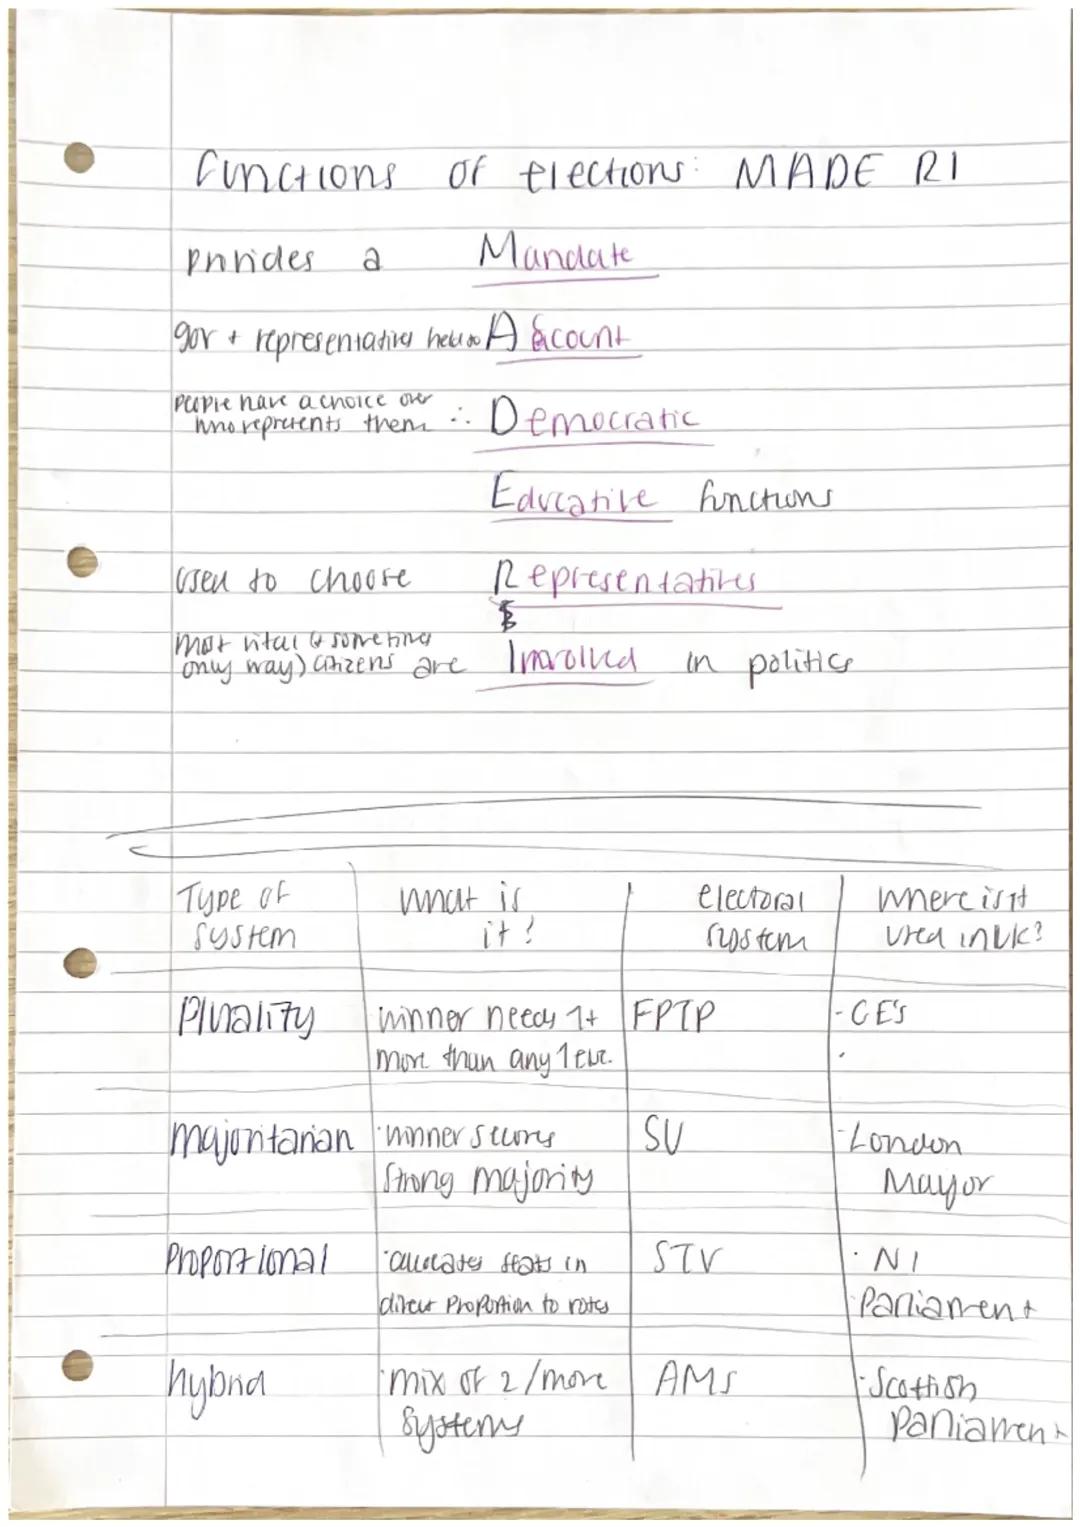 functions of elections: MADE RI
provides a Mandate
gov + representatives held to Account
people have a choice over
who represents them ∴ Democratic
Educative functions
used to choose Representatives
most vital (& sometimes
only way) citizens are Involved in politics
Type of system | what is it? | electoral system | where is it used in UK?
Plurality | winner needs 1+ more than any 1 else. | FPTP | - GE's
majoritarian | · winner secures strong majority | SV | - London Mayor
Proportional | · allocates seats in direct proportion to votes | STV | · NI Parliament
hybrid | · mix of 2/more systems | AMS | · Scottish Parliament